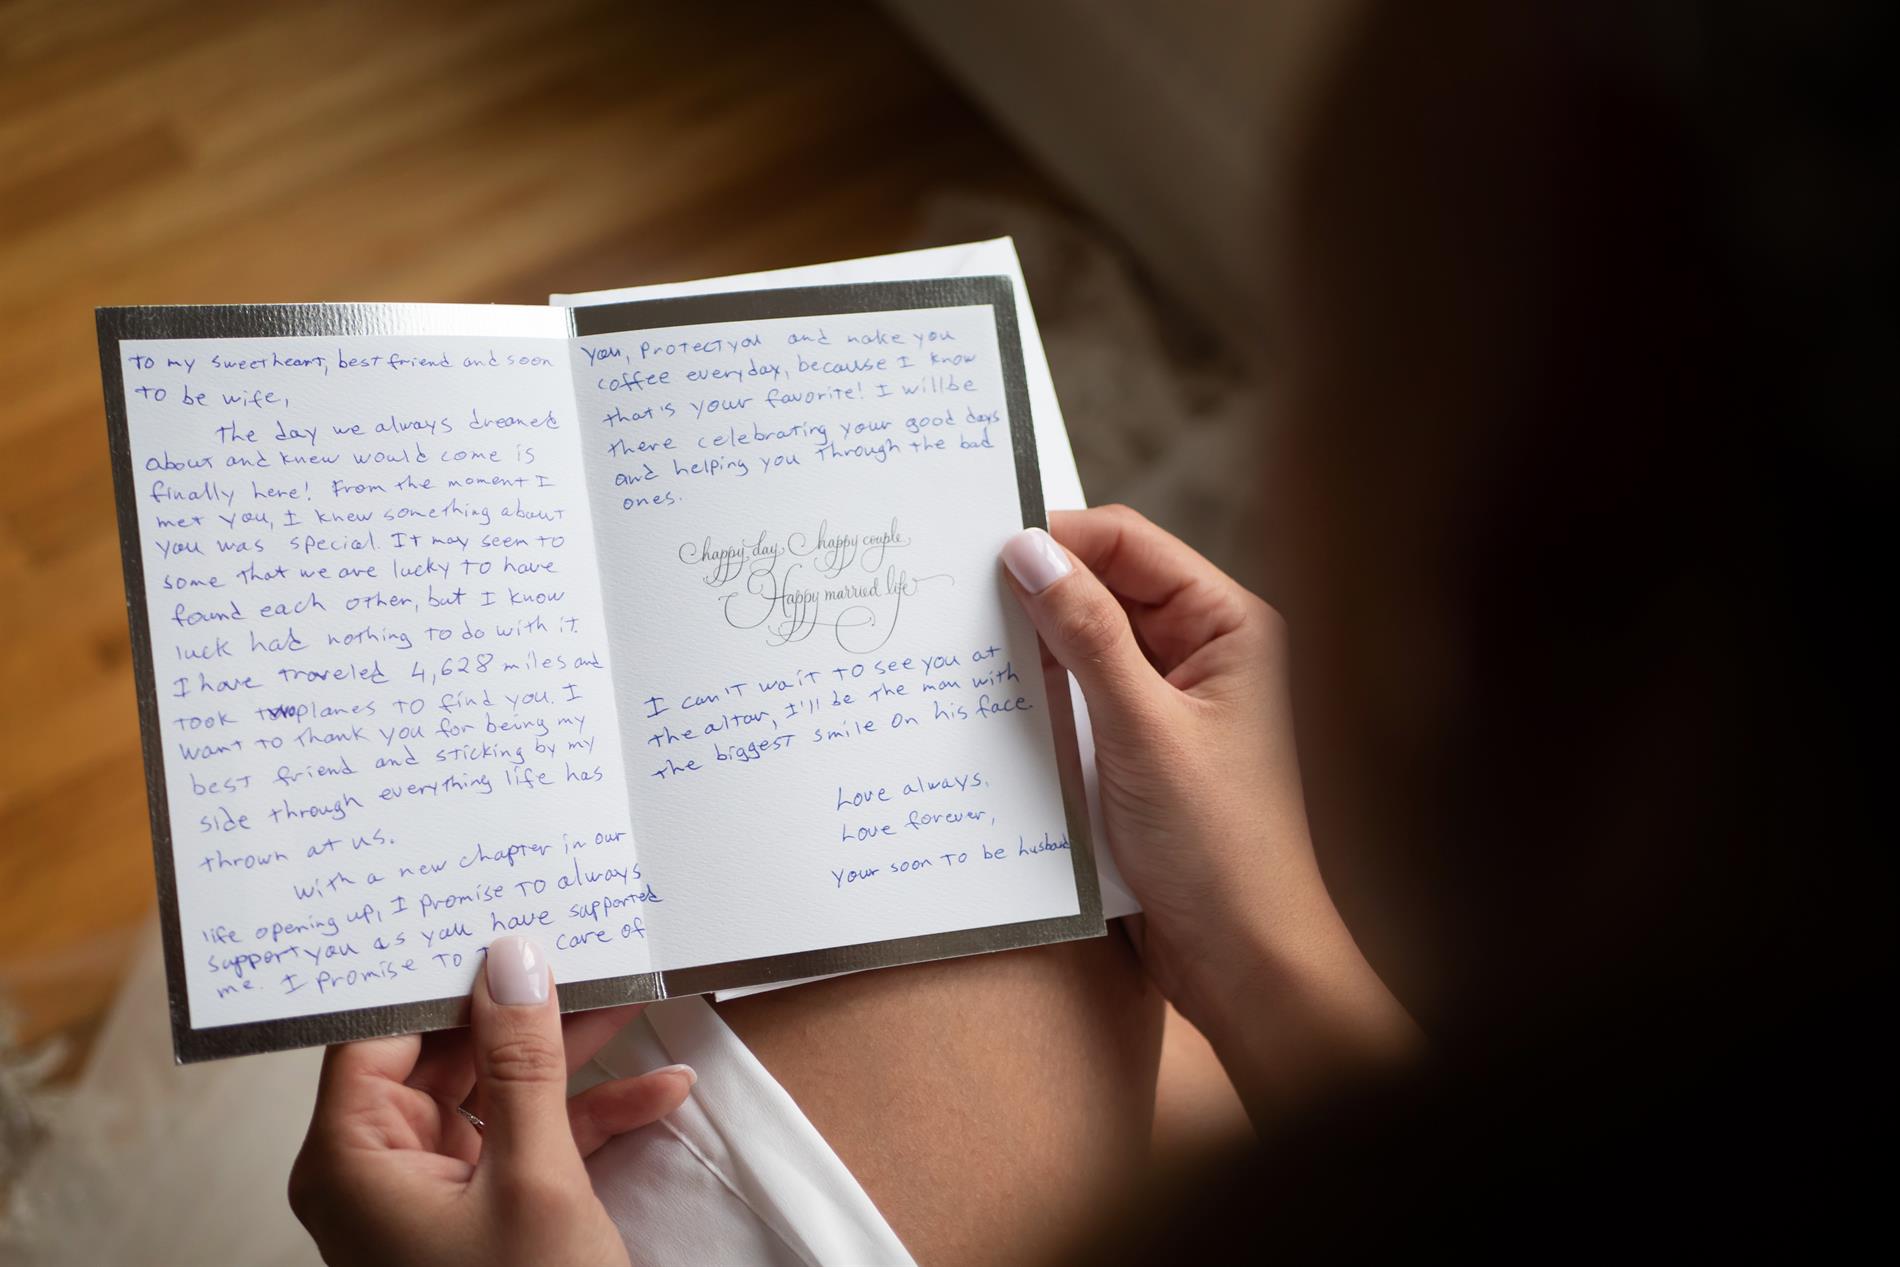 To my sweetheart, best friend and soon
to be wife,
The day we always dreamed
about and knew would come is
finally here! From the moment I
met you, I knew something about
you was special. It may seem to
some that we are lucky to have
found each other, but I know
luck had nothing to do with it.
I have traveled 4,628 miles and
took two planes to find you. I
want to thank you for being my
best friend and sticking by my
side through everything life has
thrown at us.
With a new chapter in our
life opening up, I promise to always
support you as you have supported
me. I promise to care of
you, protect you and make you
coffee everyday, because I know
that's your favorite! I will be
there celebrating your good days
and helping you through the bad
ones.
Chappy day, Chappy couple,
Happy married life
I can't wait to see you at
the altar, I'll be the man with
the biggest smile on his face.
Love always,
Love forever,
your soon to be husband